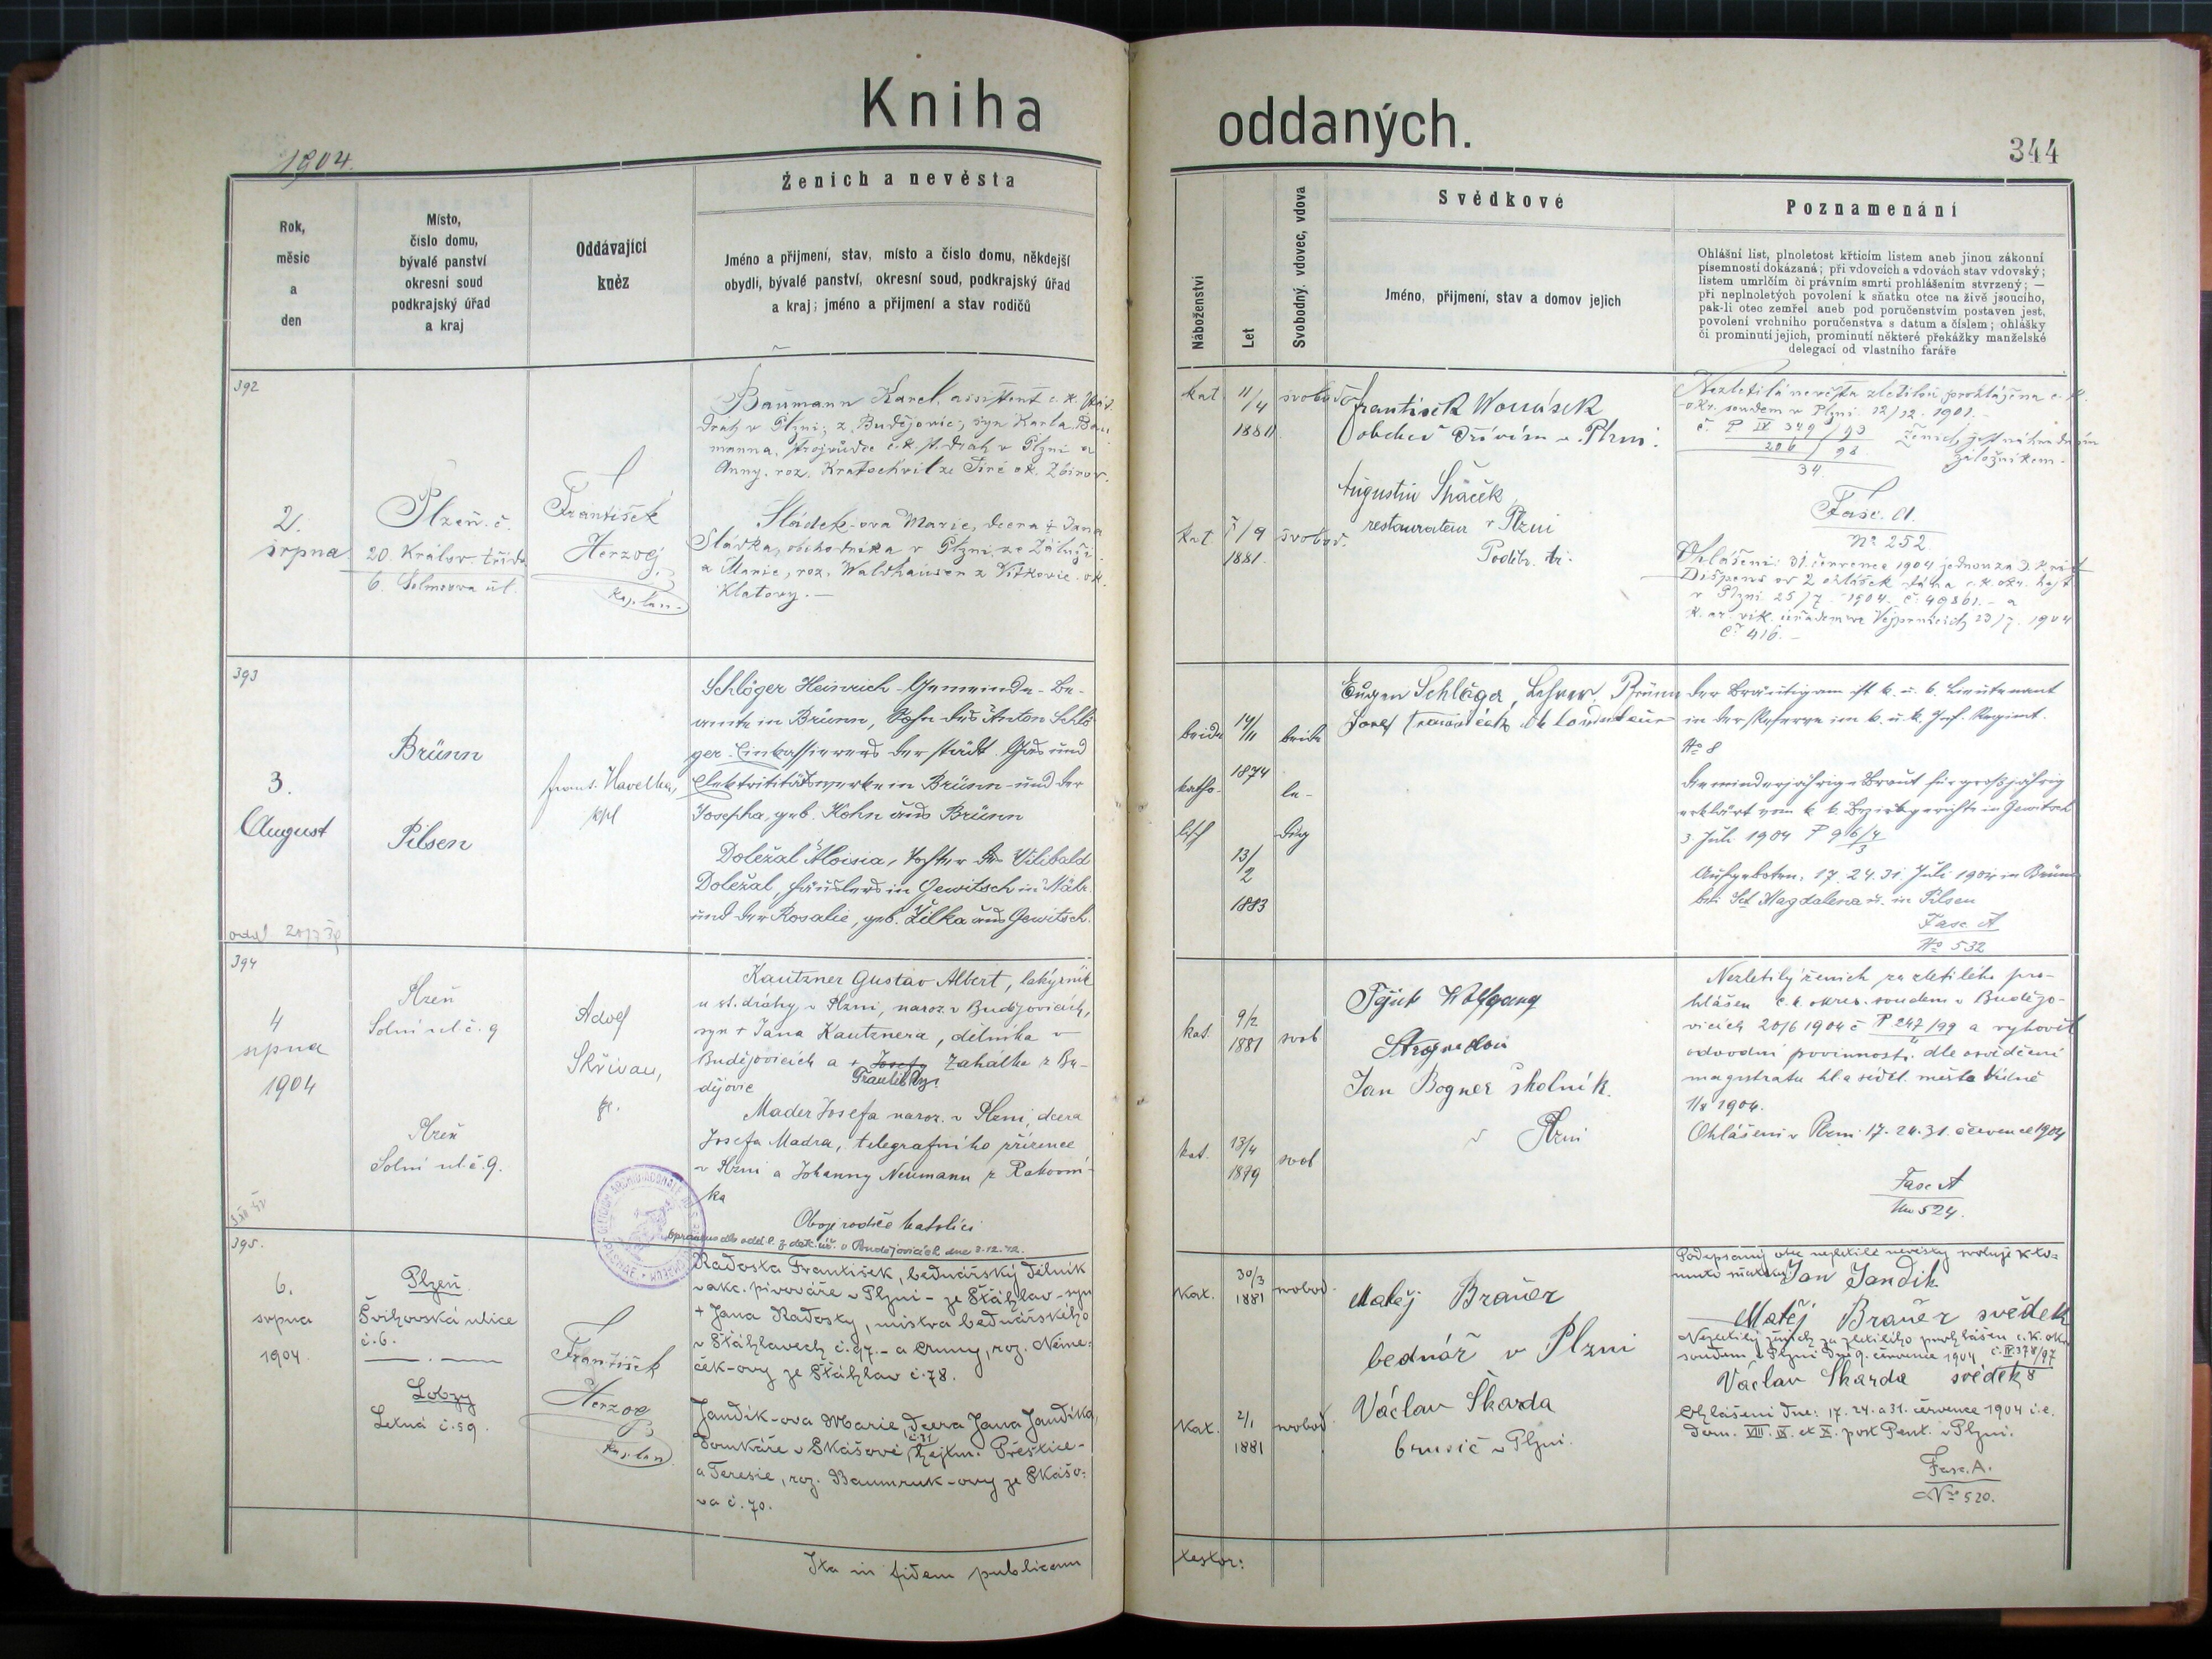 Kniha
oddaných.
1904.
344
Rok,
měsíc
a
den
Místo,
číslo domu,
bývalé panství
okresní soud
podkrajský úřad
a kraj
Oddávající
kněz
Ženich a nevěsta
Jméno a příjmení, stav, místo a číslo domu, někdejší
obydlí, bývalé panství, okresní soud, podkrajský úřad
a kraj; jméno a příjmení a stav rodičů
Náboženství
Let
Svobodný, vdovec, vdova
Svědkové
Jméno, příjmení, stav a domov jejich
Poznamenání
Ohlášní list, plnoletost křticím listem aneb jinou zákonní
písemností dokázaná; při vdovcích a vdovách stav vdovský;
listem umrlčím či právním smrti prohlášením stvrzený; —
při neplnoletých povolení k sňatku otce na živě jsoucího,
pak-li otec zemřel aneb pod poručenstvím postaven jest,
povolení vrchního poručenstva s datum a číslem; ohlášky
či prominutí jejich, prominutí některé překážky manželské
delegací od vlastního faráře
392
2.
srpna
Plzeň. č.
20. Královs. třída
6. ul.
František
Herzog,
kaplan
Baumann Karel, assistent c. k. stát.
dráh v Plzni, z Budějovic, syn Karla Bau
manna, strojvůdce c. k. st. drah v Plzni a
Anny, roz. Kratochvil ze
Sládek-ova Marie, dcera † Jana
Sládka, obchodníka v Plzni ze
a Marie, roz. Waldhauser z Vítkovic. ok.
Klatovy. —
kat. 11/4 svobod
1881
kat. 9 svobod.
1881.
František
obchod dřívím v Plzni.
Augustin
restaurateur v Plzni
Nezletilá nevěsta zletilou prohlášena c. k.
okr. soudem v Plzni 12/12. 1901. —
č. P IV 349/93
206/98
34
Ženich jest náhradním
záložníkem.
Fasc. A.
No 252
Ohlášeni: 31. července 1904 jednou za
Dispens od 2 ohlášek dána c. k. okr. hejt
v Plzni 25/7. 1904. č. 49861. — a
k. ar. vik. úřadem ve Vejprnicích 23/7. 1904
č. 416. —
393
3.
August
Brünn
Pilsen
Frant. Havelka,
kpl
Schlöger Heinrich — Gemeinde-Be-
amte in Brünn, Sohn des Anton Schlö
ger Einkassierers der städt. Gas und
Elektrizitätswerke in Brünn und der
Josepha, geb. Kohn aus Brünn
Doležal Aloisia, Tochter des Vilibald
Doležal, Häuslers in Gewitsch in Mähr.
und der Rosalie, geb. Žilka aus Gewitsch.
beide 14/11 beide
1874
katho- le-
lisch dig
13/2
1883
Eugen Schlöger, Lehrer, Brünn
Josef
der Bräutigam ist k. u. k. Lieutenant
in der Reserve im k. u. k. Inf. Regimt.
No 8
die minderjährige Braut für großjährig
erklärt vom k. k. Bezirksgerichte in Gewitsch
3 Juli 1904 P 96/4
3
Aufgeboten: 17. 24. 31. Juli 1904 in Brünn
bei Sct Magdalena u. in Pilsen
Fasc. A
No 532
394
4
srpna
1904
Plzeň
Solní ul. č. 9
Plzeň
Solní ul. č. 9.
Adolf
Skřivan,
Kautzner Gustav Albert, lakýrník
u st. dráhy v Plzni, naroz. v Budějovicích,
syn † Jana Kautznera, dělníka v
Budějovicích a † Josefy Zahálka z Bu-
dějovic Františky.
Mader Josefa naroz. v Plzni, dcera
Josefa Madra, telegrafního zřízence
v Plzni a Johanny Neumann z Rakovní-
ka
Oboji rodiče katolíci
Opraveno dle oddl. z dek. úř. v Budějovicích dne 3.12.42.
kat. 9/2 svob
1881
kat. 13/4 svob
1879
Wolfgang
Jan Bogner školník.
v Plzni
Nezletilý ženich za zletilého pro-
hlášen c. k. okres. soudem v Budějo-
vicích 20/6 1904 č P 247/99 a vyhověl
odvodní povinnosti dle osvědčení
magistrátu hl. a sídel. města Vídně
1/8 1904.
Ohlášeni v Plzni 17. 24. 31. července 1904
Fasc A
No 524.
395.
6.
srpna
1904.
Plzeň
Švihovská ulice
č. 6.
Lobzy
Letná č. 59.
František
Herzog
kaplan
Radosta František, bednářský dělník
v akc. pivováře v Plzni — ze Šťáhlav — syn
† Jana Radosty, mistra bednářského
v Šťáhlavech č. 97. — a Anny, roz. Něme-
ček-ovy ze Šťáhlav č. 78.
Jandík-ova Marie, dcera Jana Jandíka,
domkáře v Skašově, č. 31 hejtm. Přeštice —
a Terezie, roz. Baumruk-ovy ze Skašo-
va č. 70.
Kat. 30/3 svobod.
1881
Kat. 2/1 svobod
1881
Matěj Brauer
bednář v Plzni
Václav Škarda
brusič v Plzni.
Podepsaný otec nezletilé nevěsty svoluje k to-
muto sňatku Jan Jandík
Matěj Brauer svědek
Nezletilý ženich za zletilého prohlášen c. k. okr.
soudem v Plzni dne 9. července 1904 č. P 378/97
8
Václav Škarda svědek
Ohlášeni dne: 17. 24. a 31. července 1904 i. e.
Dom. VIII. IX. et X. post Pent. v Plzni.
Fasc. A.
No 520.
Ita in fidem publicam
testor: